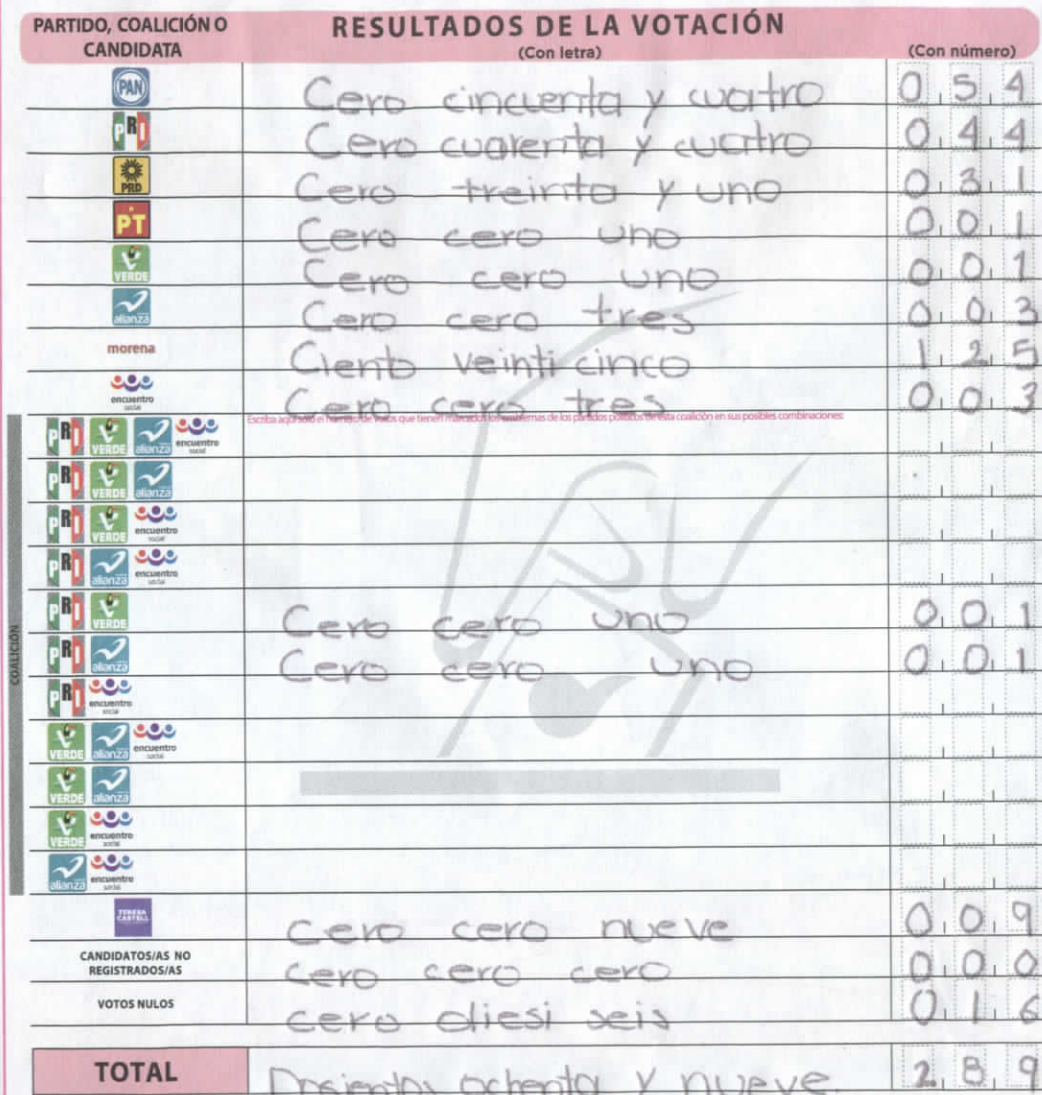 PARTIDO, COALICIÓN O CANDIDATA RESULTADOS DE LA VOTACIÓN (Con letra) (Con número)
PAN Cero cincuenta y cuatro 054
PRI Cero cuarenta y cuatro 044
PRD Cero treinta y uno 031
PT Cero cero uno 001
VERDE Cero cero uno 001
alianza Cero cero tres 003
morena Ciento veinti cinco 125
encuentro social Cero cero tres 003
Escriba aquí sólo el número de votos que tienen marcados los emblemas de los partidos políticos de esta coalición en sus posibles combinaciones:
COALICIÓN
PRI VERDE alianza encuentro social
PRI VERDE alianza
PRI VERDE encuentro social
PRI alianza encuentro social
PRI VERDE Cero cero uno 001
PRI alianza Cero cero uno 001
PRI encuentro social
VERDE alianza encuentro social
VERDE alianza
VERDE encuentro social
alianza encuentro social
TERESA CASTELL cero cero nueve 009
CANDIDATOS/AS NO REGISTRADOS/AS cero cero cero 000
VOTOS NULOS cero diesi seis 016
TOTAL Dosientos ochenta y nueve 289